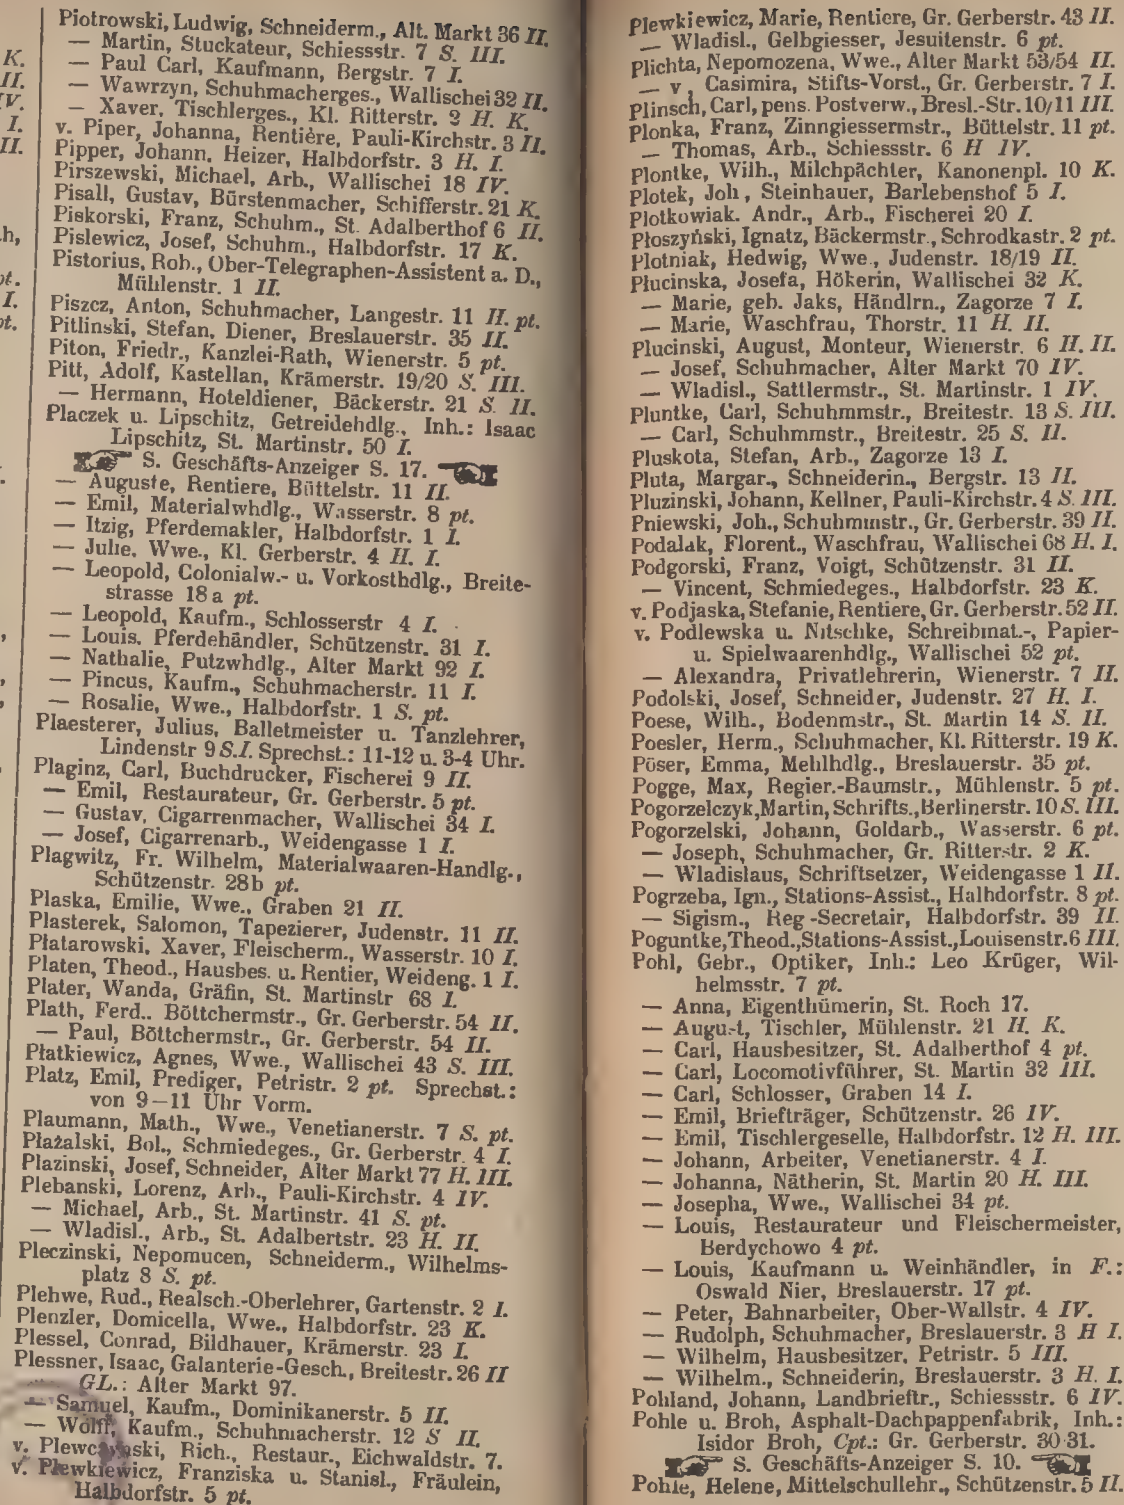 Piotrowski, Ludwig, Schneiderm., Alt. Markt 36 II.
— Martin, Stuckateur, Schiessstr. 7 S. III.
— Paul Carl, Kaufmann, Bergstr. 7 I.
— Wawrzyn, Schuhmacherges., Wallischei 32 II.
— Xaver, Tischlerges., Kl. Ritterstr. 2 H. K.
v. Piper, Johanna, Rentière, Pauli-Kirchstr. 3 II.
Pipper, Johann, Heizer, Halbdorfstr. 3 H. I.
Pirszewski, Michael, Arb., Wallischei 18 IV.
Pisall, Gustav, Bürstenmacher, Schifferstr. 21 K.
Piskorski, Franz, Schuhm., St. Adalberthof 6 II.
Pislewicz, Josef, Schuhm., Halbdorfstr. 17 K.
Pistorius, Rob., Ober-Telegraphen-Assistent a. D.,
Mühlenstr. 1 II.
Piszcz, Anton, Schuhmacher, Langestr. 11 II. pt.
Pitlinski, Stefan, Diener, Breslauerstr. 35 II.
Piton, Friedr., Kanzlei-Rath, Wienerstr. 5 pt.
Pitt, Adolf, Kastellan, Krämerstr. 19/20 S. III.
— Hermann, Hoteldiener, Bäckerstr. 21 S. II.
Placzek u. Lipschitz, Getreidehdlg., Inh.: Isaac
Lipschitz, St. Martinstr. 50 I.
S. Geschäfts-Anzeiger S. 17.
— Auguste, Rentiere, Büttelstr. 11 II.
— Emil, Materialwhdlg., Wasserstr. 8 pt.
— Itzig, Pferdemakler, Halbdorfstr. 1 I.
— Julie, Wwe., Kl. Gerberstr. 4 H. I.
— Leopold, Colonialw.- u. Vorkosthdlg., Breite-
strasse 18 a pt.
— Leopold, Kaufm., Schlosserstr 4 I.
— Louis. Pferdehändler, Schützenstr. 31 I.
— Nathalie, Putzwhdlg., Alter Markt 92 I.
— Pincus, Kaufm., Schuhmacherstr. 11 I.
— Rosalie, Wwe., Halbdorfstr. 1 S. pt.
Plaesterer, Julius, Balletmeister u. Tanzlehrer,
Lindenstr 9 S. I. Sprechst.: 11-12 u. 3-4 Uhr.
Plaginz, Carl, Buchdrucker, Fischerei 9 II.
— Emil, Restaurateur, Gr. Gerberstr. 5 pt.
— Gustav, Cigarrenmacher, Wallischei 34 I.
— Josef, Cigarrenarb., Weidengasse 1 I.
Plagwitz, Fr. Wilhelm, Materialwaaren-Handlg.,
Schützenstr. 28b pt.
Plaska, Emilie, Wwe., Graben 21 II.
Plasterek, Salomon, Tapezierer, Judenstr. 11 II.
Płatarowski, Xaver, Fleischerm., Wasserstr. 10 I.
Platen, Theod., Hausbes. u. Rentier, Weideng. 1 I.
Plater, Wanda, Gräfin, St. Martinstr 68 I.
Plath, Ferd.. Böttchermstr., Gr. Gerberstr. 54 II.
— Paul, Böttchermstr., Gr. Gerberstr. 54 II.
Płatkiewicz, Agnes, Wwe., Wallischei 43 S. III.
Platz, Emil, Prediger, Petristr. 2 pt. Sprechst.:
von 9—11 Uhr Vorm.
Plaumann, Math., Wwe., Venetianerstr. 7 S. pt.
Płażalski, Bol., Schmiedeges., Gr. Gerberstr. 4 I.
Plazinski, Josef, Schneider, Alter Markt 77 H. III.
Plebanski, Lorenz, Arb., Pauli-Kirchstr. 4 IV.
— Michael, Arb., St. Martinstr. 41 S. pt.
— Wladisl., Arb., St. Adalbertstr. 23 H. II.
Pleczinski, Nepomucen, Schneiderm., Wilhelms-
platz 8 S. pt.
Plehwe, Rud., Realsch.-Oberlehrer, Gartenstr. 2 I.
Plenzler, Domicella, Wwe., Halbdorfstr. 23 K.
Plessel, Conrad, Bildhauer, Krämerstr. 23 I.
Plessner, Isaac, Galanterie-Gesch., Breitestr. 26 II
GL.: Alter Markt 97.
— Samuel, Kaufm., Dominikanerstr. 5 II.
— Wolff, Kaufm., Schuhmacherstr. 12 S II.
v. Rich., Restaur., Eichwaldstr. 7.
v. Plewkiewicz, Franziska u. Stanisl., Fräulein,
Halbdorfstr. 5 pt.
Plewkiewicz, Marie, Rentiere, Gr. Gerberstr. 43 II.
— Wladisl., Gelbgiesser, Jesuitenstr. 6 pt.
Plichta, Nepomozena, Wwe., Alter Markt 53/54 II.
— v, Casimira, Stifts-Vorst., Gr. Gerberstr. 7 I.
Plinsch, Carl, pens. Postverw., Bresl.-Str. 10/11 III.
Plonka, Franz, Zinngiessermstr., Büttelstr. 11 pt.
— Thomas, Arb., Schiessstr. 6 H IV.
Plontke, Wilh., Milchpächter, Kanonenpl. 10 K.
Plotek, Joh, Steinhauer, Barlebenshof 5 I.
Plotkowiak. Andr., Arb., Fischerei 20 I.
Płoszyński, Ignatz, Bäckermstr., Schrodkastr. 2 pt.
Plotniak, Hedwig, Wwe., Judenstr. 18/19 II.
Plucinska, Josefa, Hökerin, Wallischei 32 K.
— Marie, geb. Jaks, Händlrn., Zagorze 7 I.
— Marie, Waschfrau, Thorstr. 11 H. II.
Plucinski, August, Monteur, Wienerstr. 6 H. II.
— Josef, Schuhmacher, Alter Markt 70 IV.
— Wladisl., Sattlermstr., St. Martinstr. 1 IV.
Pluntke, Carl, Schuhmmstr., Breitestr. 13 S. III.
— Carl, Schuhmmstr., Breitestr. 25 S. II.
Pluskota, Stefan, Arb., Zagorze 13 I.
Pluta, Margar., Schneiderin., Bergstr. 13 II.
Pluzinski, Johann, Kellner, Pauli-Kirchstr. 4 S. III.
Pniewski, Joh., Schuhmmstr., Gr. Gerberstr. 39 II.
Podalak, Florent., Waschfrau, Wallischei 68 H. I.
Podgorski, Franz, Voigt, Schützenstr. 31 II.
— Vincent, Schmiedeges., Halbdorfstr. 23 K.
v. Podjaska, Stefanie, Rentiere, Gr. Gerberstr. 52 II.
v. Podlewska u. Nitschke, Schreibmat.-, Papier-
u. Spielwaarenhdlg., Wallischei 52 pt.
— Alexandra, Privatlehrerin, Wienerstr. 7 II.
Podolski, Josef, Schneider, Judenstr. 27 H. I.
Poese, Wilh., Bodenmstr., St. Martin 14 S. II.
Poesler, Herm., Schuhmacher, Kl. Ritterstr. 19 K.
Pöser, Emma, Mehlhdlg., Breslauerstr. 35 pt.
Pogge, Max, Regier.-Baumstr., Mühlenstr. 5 pt.
Pogorzelczyk, Martin, Schrifts., Berlinerstr. 10 S. III.
Pogorzelski, Johann, Goldarb., Wasserstr. 6 pt.
— Joseph, Schuhmacher, Gr. Ritterstr. 2 K.
— Wladislaus, Schriftsetzer, Weidengasse 1 II.
Pogrzeba, Ign., Stations-Assist., Halbdorfstr. 8 pt.
— Sigism., Reg-Secretair, Halbdorfstr. 39 II.
Poguntke, Theod., Stations-Assist., Louisenstr. 6 III.
Pohl, Gebr., Optiker, Inh.: Leo Krüger, Wil-
helmsstr. 7 pt.
— Anna, Eigenthümerin, St. Roch 17.
— August, Tischler, Mühlenstr. 21 H. K.
— Carl, Hausbesitzer, St. Adalberthof 4 pt.
— Carl, Locomotivführer, St. Martin 32 III.
— Carl, Schlosser, Graben 14 I.
— Emil, Briefträger, Schützenstr. 26 IV.
— Emil, Tischlergeselle, Halbdorfstr. 12 H. III.
— Johann, Arbeiter, Venetianerstr. 4 I.
— Johanna, Nätherin, St. Martin 20 H. III.
— Josepha, Wwe., Wallischei 34 pt.
— Louis, Restaurateur und Fleischermeister,
Berdychowo 4 pt.
— Louis, Kaufmann u. Weinhändler, in F.:
Oswald Nier, Breslauerstr. 17 pt.
— Peter, Bahnarbeiter, Ober-Wallstr. 4 IV.
— Rudolph, Schuhmacher, Breslauerstr. 3 H I.
— Wilhelm, Hausbesitzer, Petristr. 5 III.
— Wilhelm., Schneiderin, Breslauerstr. 3 H. I.
Pohland, Johann, Landbrieftr., Schiessstr. 6 IV.
Pohle u. Broh, Asphalt-Dachpappenfabrik, Inh.:
Isidor Broh, Cpt.: Gr. Gerberstr. 30 31.
S. Geschäfts-Anzeiger S. 10.
Pohle, Helene, Mittelschullehr., Schützenstr. 5 II.